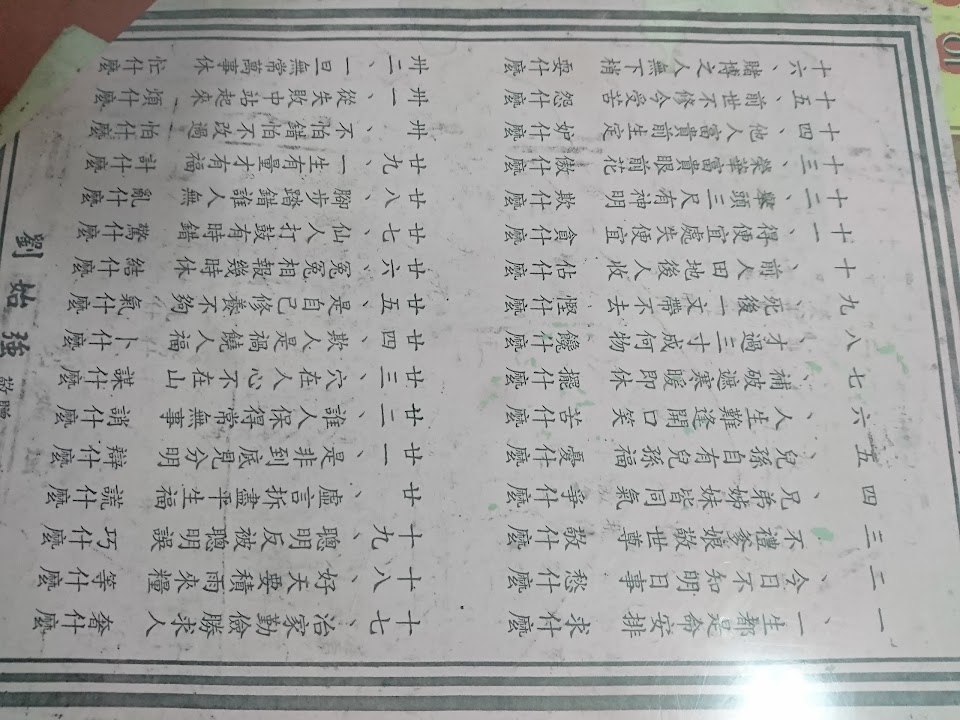 一、一生都是命安排 求什麼
二、今日不知明日事 愁什麼
三、不禮爹娘敬世尊 敬什麼
四、兄弟姊妹皆同氣 爭什麼
五、兒孫自有兒孫福 憂什麼
六、人生難逢開口笑 苦什麼
七、補破遮寒暖即休 擺什麼
八、才過三寸成何物 饞什麼
九、死後一文帶不去 慳什麼
十、前人田地後人收 怗什麼
十一、得便宜處失便宜 貪什麼
十二、舉頭三尺有神明 欺什麼
十三、榮華富貴眼前花 傲什麼
十四、他人富貴前生定 妒什麼
十五、前世不修今受苦 怨什麼
十六、賭博之人無下梢 耍什麼
十七、治家勤儉勝求人 奢什麼
十八、好天要積雨來糧 等什麼
十九、聰明反被聰明誤 巧什麼
廿、虛言折盡平生福 謊什麼
廿一、是非到底見分明 辯什麼
廿二、誰人保得常無事 誚什麼
廿三、穴在人心不在山 謀什麼
廿四、欺人是禍饒人福 卜什麼
廿五、是自己修養不夠 氣什麼
廿六、冤冤相報幾時休 結什麼
廿七、仙人打鼓有時錯 驚什麼
廿八、腳步踏錯誰人無 亂什麼
廿九、一生有量才有福 計什麼
卅、不怕錯怕不改過 怕什麼
卅一、從失敗中站起來 煩什麼
卅二、一旦無常萬事休 忙什麼
劉始強 敬贈